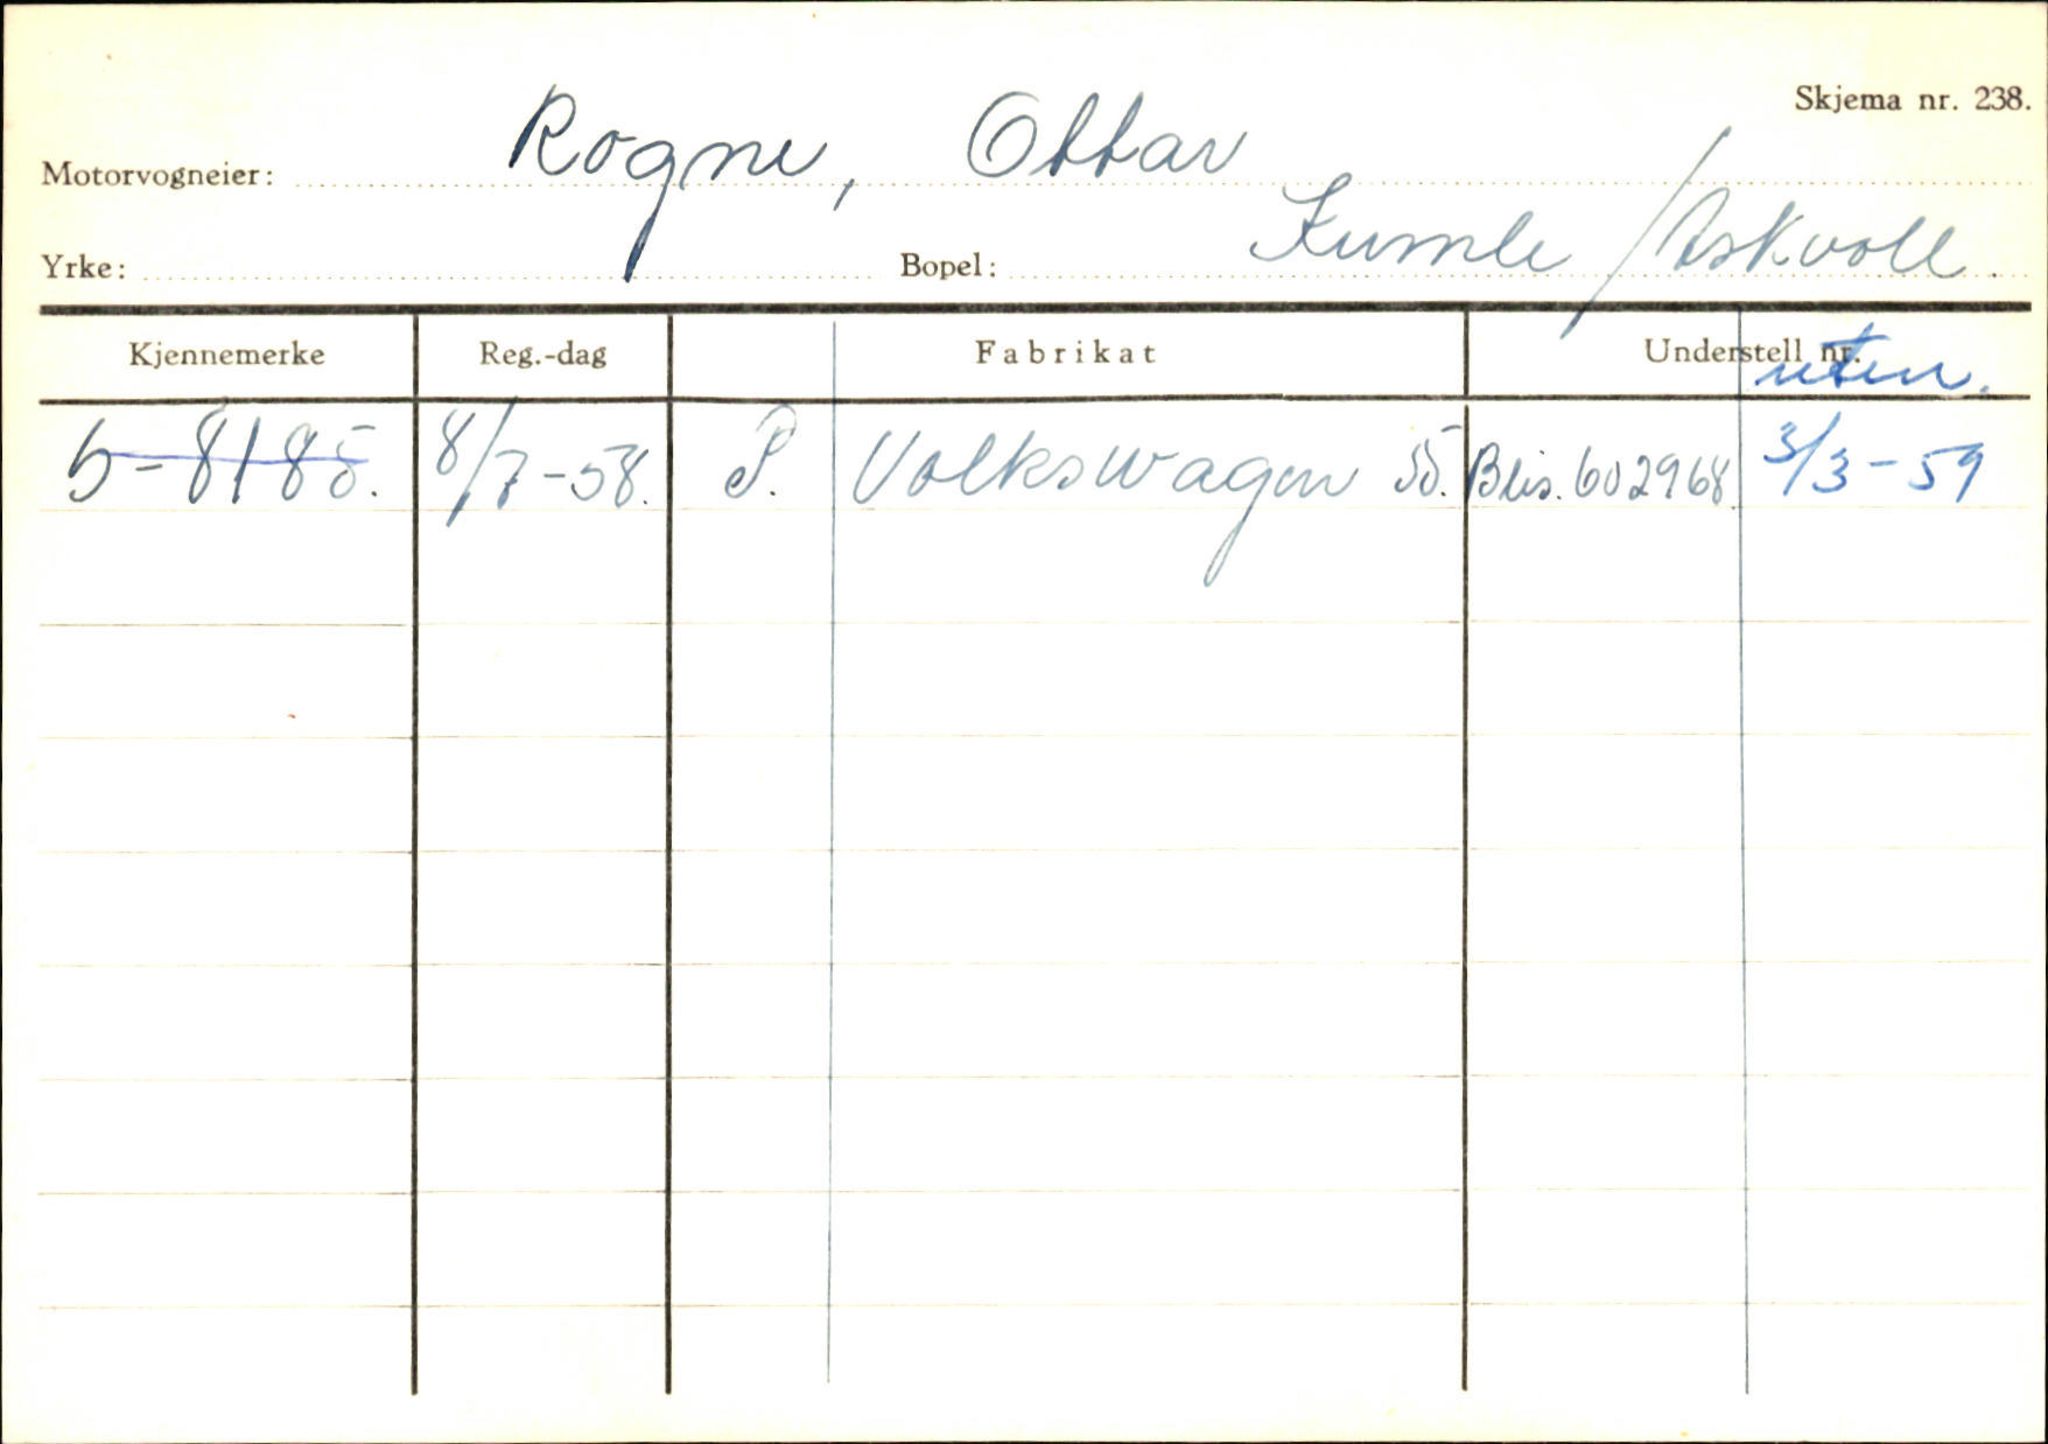 Skjema nr. 238.
Motorvogneier: Rogne, Ottar
Yrke: Bopel: Kumle / Askvoll.
Kjennemerke Reg.-dag Fabrikat Understell nr. uten.
S-8185. 8/7-58. P. Volkswagen 55. Blis. 602968. 3/3-59